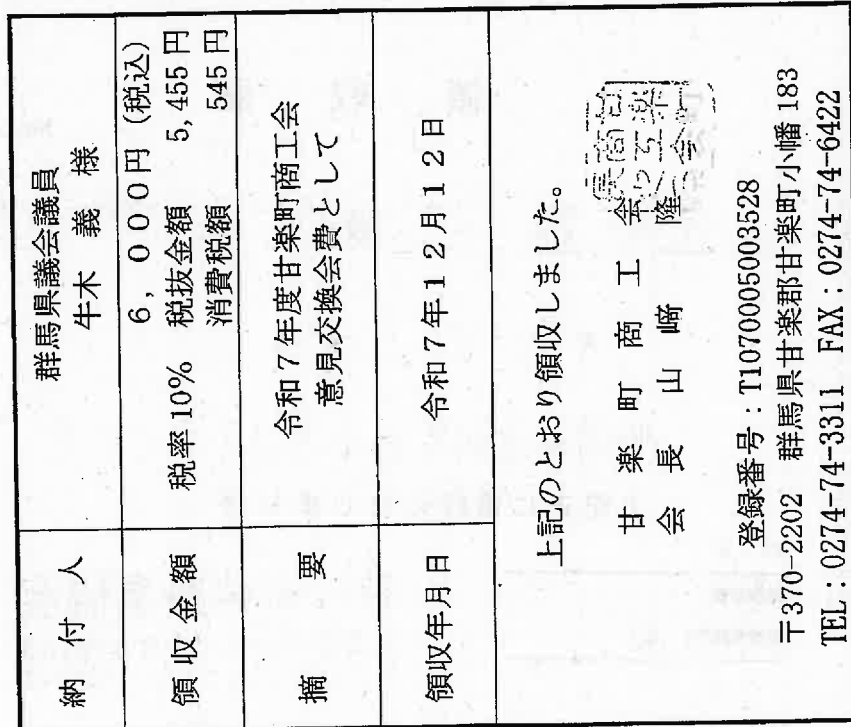 納付人
群馬県議会議員
牛木 義 様
領収金額
6,000円(税込)
税率10% 税抜金額 5,455円
消費税額 545円
摘要
令和7年度甘楽町商工会
意見交換会費として
領収年月日
令和7年12月12日
上記のとおり領収しました。
甘楽町商工会
会長 山﨑 隆
登録番号:T1070005003528
〒370-2202 群馬県甘楽郡甘楽町小幡183
TEL:0274-74-3311 FAX:0274-74-6422